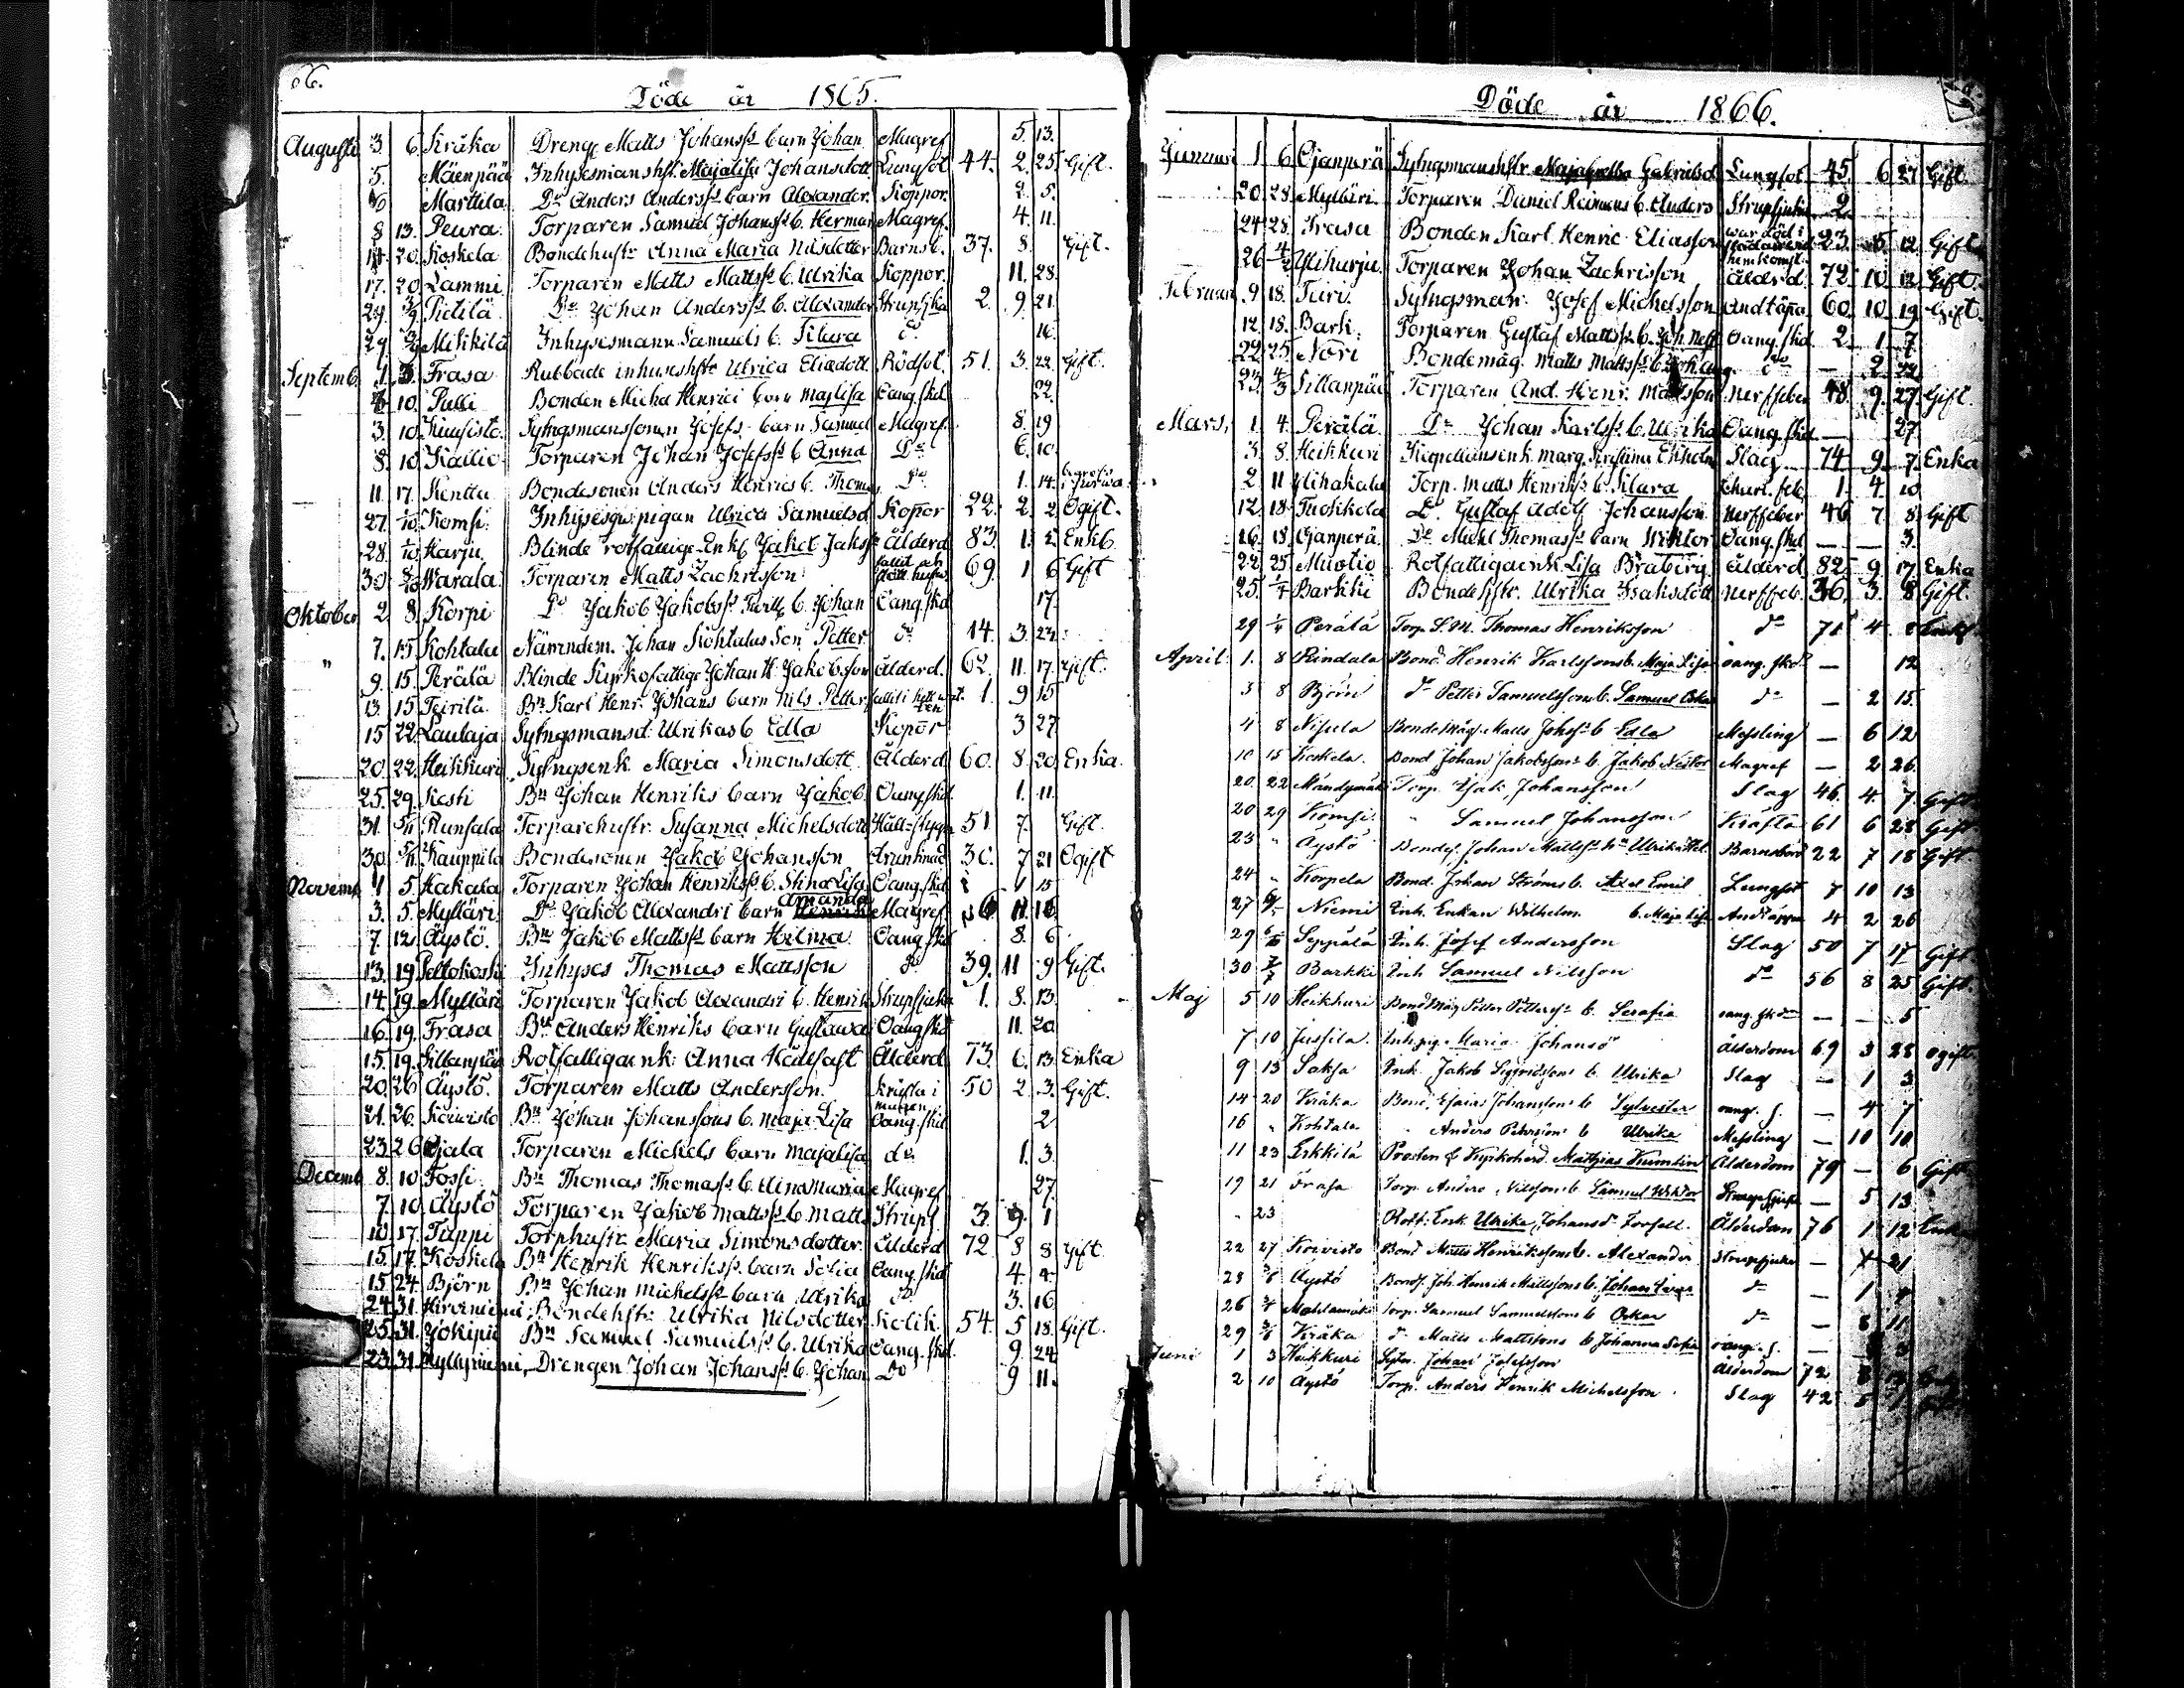 Döde år 1865.
Augusti 3 6. Kråka Dreng Matts Johanss: barn Johan Magref 5. 13.
5. Mäenpää Inhysesmanshst. Majalisa Johansdott Lungsot 44. 2. 25. Gift.
Marttila Do Anders Anderss: barn Alexander. Koppor. 2. 5.
8 13. Peura. Torparen Samuel Johanss: b. Herman Magref. 4. 11.
20. Koskela Bondehustr. Anna Maria Nilsdotter Barnsb. 37. 8. Gift.
17. 20. Lammi. Torparen Matts Mattss: b. Ulrika Koppor. 11. 28.
29. 3/9 Pietilä Do Johan Anderss: b. Alexander Strupsjuka 2. 9. 21.
29 3/9 Mikkilä Inhysesmann Samuels b. Filura do. 16.
Septemb. 1. 3. Frasa Rubbade inhyseshstr Ulrica Eliædott. Rödsot. 51. 3. 22. Gift.
10. Pulli Bonden Michel Henrici barn Majlisa Oäng.skd 22.
3. 10. Kuusisto. Sytngsmanssonen Josefs barn Samuel Magref. 8. 19
8. 10. Kallio Torparen Johan Josefss: b. Anna Do. 6. 10.
11. 17. Kentta Bondesonen Anders Henrics b. Thomas Do. 1. 14.
27. 1/10 Komsi. Inhysesgs. pigan Ulrica Samuelsd. Kopor 22. 2. 2. Ogift.
28. 1/10 Harju Blinde rotfattige Enkl. Jakob Jakss: ålderd. 83. 1. 2. Enkl.
30 8/10 Warala Torparen Matts Zachrisson 69. 1 6 Gift
Oktober 2 8. Korpi Do Jakob Jakobss: b. Johan Oäng.skd 17.
7. 15 Kohtala Nämndem. Johan Kohtalas Son Petter do 14. 3. 24.
9. 15. Perälä Blinde Kyrkofattige Johan H. Jakobsson Ålderd. 62. 11. 17. Gift.
13. 15. Teirilä Bn Karl Henr. Johans barn Nils Petter 1. 9 15
15 22. Lautaja Sytngsmansd. Ulrikas b Edla Kopor 3 27
20. 22. Heikkuri Sytngsenk Maria Simonsdott. Ålderd 60. 8. 20. Enka.
25. 29. Kesti Bn Johan Henriks barn Jakob. Oäng.skd. 1. 11.
31. 5/11 Runsala Torparehustr. Susanna Michelsdott Håll=stygn 51 7. Gift.
30. 5/11 Kauppila Bondesonen Jakob Johansson drunknad 30. 7 21 Ogift
Novemb. 1 5. Hakala Torparen Johan Henrikss: b. Stina Lisa Oäng.skd 1 15
3. 5. Mylläri. Do Jakob Alexandri barn Amanda Magref
7 12. Äystö. Bn Jakob Mattss: barn Hilma. Oäng.skd 8. 6
13. 19. Peltokoski Inhyses Thomas Mattsson do. 39. 11 9 Gift.
14. 19. Mylläri Torparen Jakob Alexandri b. Henrik Strupsjuka 1. 8. 13.
16. 19. Frasa Bn Anders Henriks barn Gustawa Oäng.skd 11. 20
15. 19. Sillanpää Rotfattigaenk: Anna Hållfast Ålderd. 73. 6. 13. Enka
20. 26 Äystö. Torparen Matts Andersson. kräfta i magen 50 2 3. Gift.
21. 26. Koivisto Bn Johan Johanssons b. Maja Lisa Oäng.skd 2
23 26 Ojala Torparen Michels barn Majalisa do. 1. 3.
Decemb. 8. 10 Fossi. Bn Thomas Thomass: b. Mina Maria Magref 27.
7. 10. Äystö Torparen Jakob Mattss: b. Matts Strups 3. 9. 1
10. 17. Tuppi Torphustr. Maria Simonsdotter ålderd 72. 8 8 Gift.
15. 17. Koskela Bn Henrik Henrikss: barn Sofia Oäng.skd 4 4.
15. 24. Björn Bn Johan Michelss: barn Ulrika do 3. 16
24. 31. Hirviniemi Bondehstr: Ulrika Nilsdotter Kolik. 54. 5 18. Gift.
25. 31. Jokipii Bn Samuel Samuelss: b. Ulrika Oäng.skd. 9. 24
23. 31. Myllyniemi, Drengen Johan Johanss: b. Johan Do 9 11.
Döde år 1866.
Januari 1 6 Ojanperä Sytngsmanshstr. Gabrielsd Lungsot 45. 6 27 Gift.
20. 28. Mylläri. Torparen Daniel Reimans b. Anders Strupsjuka 2.
24 28. Frasa Bonden Karl Henric Eliasson 23. 5. 12. Gift
26 4/2 Ylihurju. Torparen Johan Zachrisson ålderd. 72. 10. 12. Gift.
Februari 9 18. Turi. Sytngsman Josef Michelsson Andtäppa 60. 10. 19. Gift.
12. 18. Bark. Torparen Gustaf Mattss: b. Joh. Matt. Oäng.skd 2. 1. 7
22. 25. Nori Bondemåg Matts Mattss: b. do — 2. 22
23. 4/3 Sillanpää Torparen And. Henr. Mattsson Nerffeber 48. 9. 27. Gift.
Mars, 1. 4. Perälä Do Johan Karlss: b. Ulrika Oäng.skd — 27.
3. 8. Heikkuri Kapellansenk. Marg. Kristina Ekholm Slag 74. 9. 7. Enka
2. 11 Ylihakala Torp. Matts Henrikss: b. Filura 1. 4. 10
12. 18. Tuokkola Do. Gustaf Adolf Johansson Nerffeber 46 7 8. Gift
16. 18. Ojanperä. Do Michel Thomass: barn Wiktor Oäng.skd — 3.
22. 25. Muotio Rotfattigaenk. Lisa Bråberg ålderd. 82. 9 17 Enka
25. 1/4 Barkki Bondehstr. Ulrika Isaksdott Nerffeb. 36. 3. 8 Gift.
29 1/4 Perälä Torp. S. M. Thomas Henriksson do 71 4.
April. 1. 8 Rindala Bond. Henrik Karlssons b. Maja Lisa oäng. skd — 12
3 8 Björn do Petter Samuelssons b. Samuel Oskar do — 2 15.
4 8 Nisula Bondemåg Matts Johss: b Edla Messling — 6 12
10 15 Koskela. Bond Johan Jakobssons b. Jakob Nestor Magref — 2 26.
20. 22 Mändymäki Torp. Isak Johansson Slag 46. 4. 7. Gift
20 29 Komsi. " Samuel Johansson Kräfta 61 6 28 Gift
23 " Äystö Bondes. Johan Mattss: h:u Ulrika Barnsbörd 22 7 18 Gift
24 " Korpela Bond. Johan Ströms b. Axel Emil Lungsot 7 10 13
27 6/5 Niemi Inh. Enkan Wilhelm. b. Maja Lisa Andtäppa 4 2 26
29 6/5 Seppälä Inh. Josef Andersson Slag 50 7 17 Gift.
30 Barkki Inh Samuel Nilsson do 56 8 25 Gift.
Maj 5 10 Heikkuri Bondmåg Petter Petterss: b. Serafia oäng. skd — — 5
7 10 Jussila. Inh.pig. Maria Johansd Ålderdom 69 3 28 ogift.
9 13 Saksa Inh. Jakob Sigfridssons b Ulrika Slag — 1 3
14 20 Kråka Bond. Esaias Johanssons b Sylvester oäng. s. — 4 7
16 " Kohtala " Anders Pehrssons b Ulrika Messling — 10 10
11 23 Erkkilä Prosten & Kyrkoherd. Mathias Kumlin Ålderdom 79 — 6 Gift
19 21 Frasa Torp. Anders Nilssons b. Samuel Wiktor Strupsjuka — 5 13
" 23 Rotf: Enk. Ulrika Johansd. Forsell. Ålderdom 76 1 12 Enka
22 27 Koivisto Bond Matts Henrikssons b. Alexander Strupsjuka — 21
23 3/6 Äystö Bonds. Joh. Henrik Mattssons b. Johan do — 1
26 Mahlamäki Torp. Samuel Samuelssons b Oskar do — 8 11
29 3/6 Kråka do Matts Mattssons b Johanna Sofia oäng. s. —
Juni 1 3 Heikkuri Sytn. Johan Josefsson Ålderdom 72
2 10 Äystö Torp. Anders Henrik Michelsson Slag 42 5